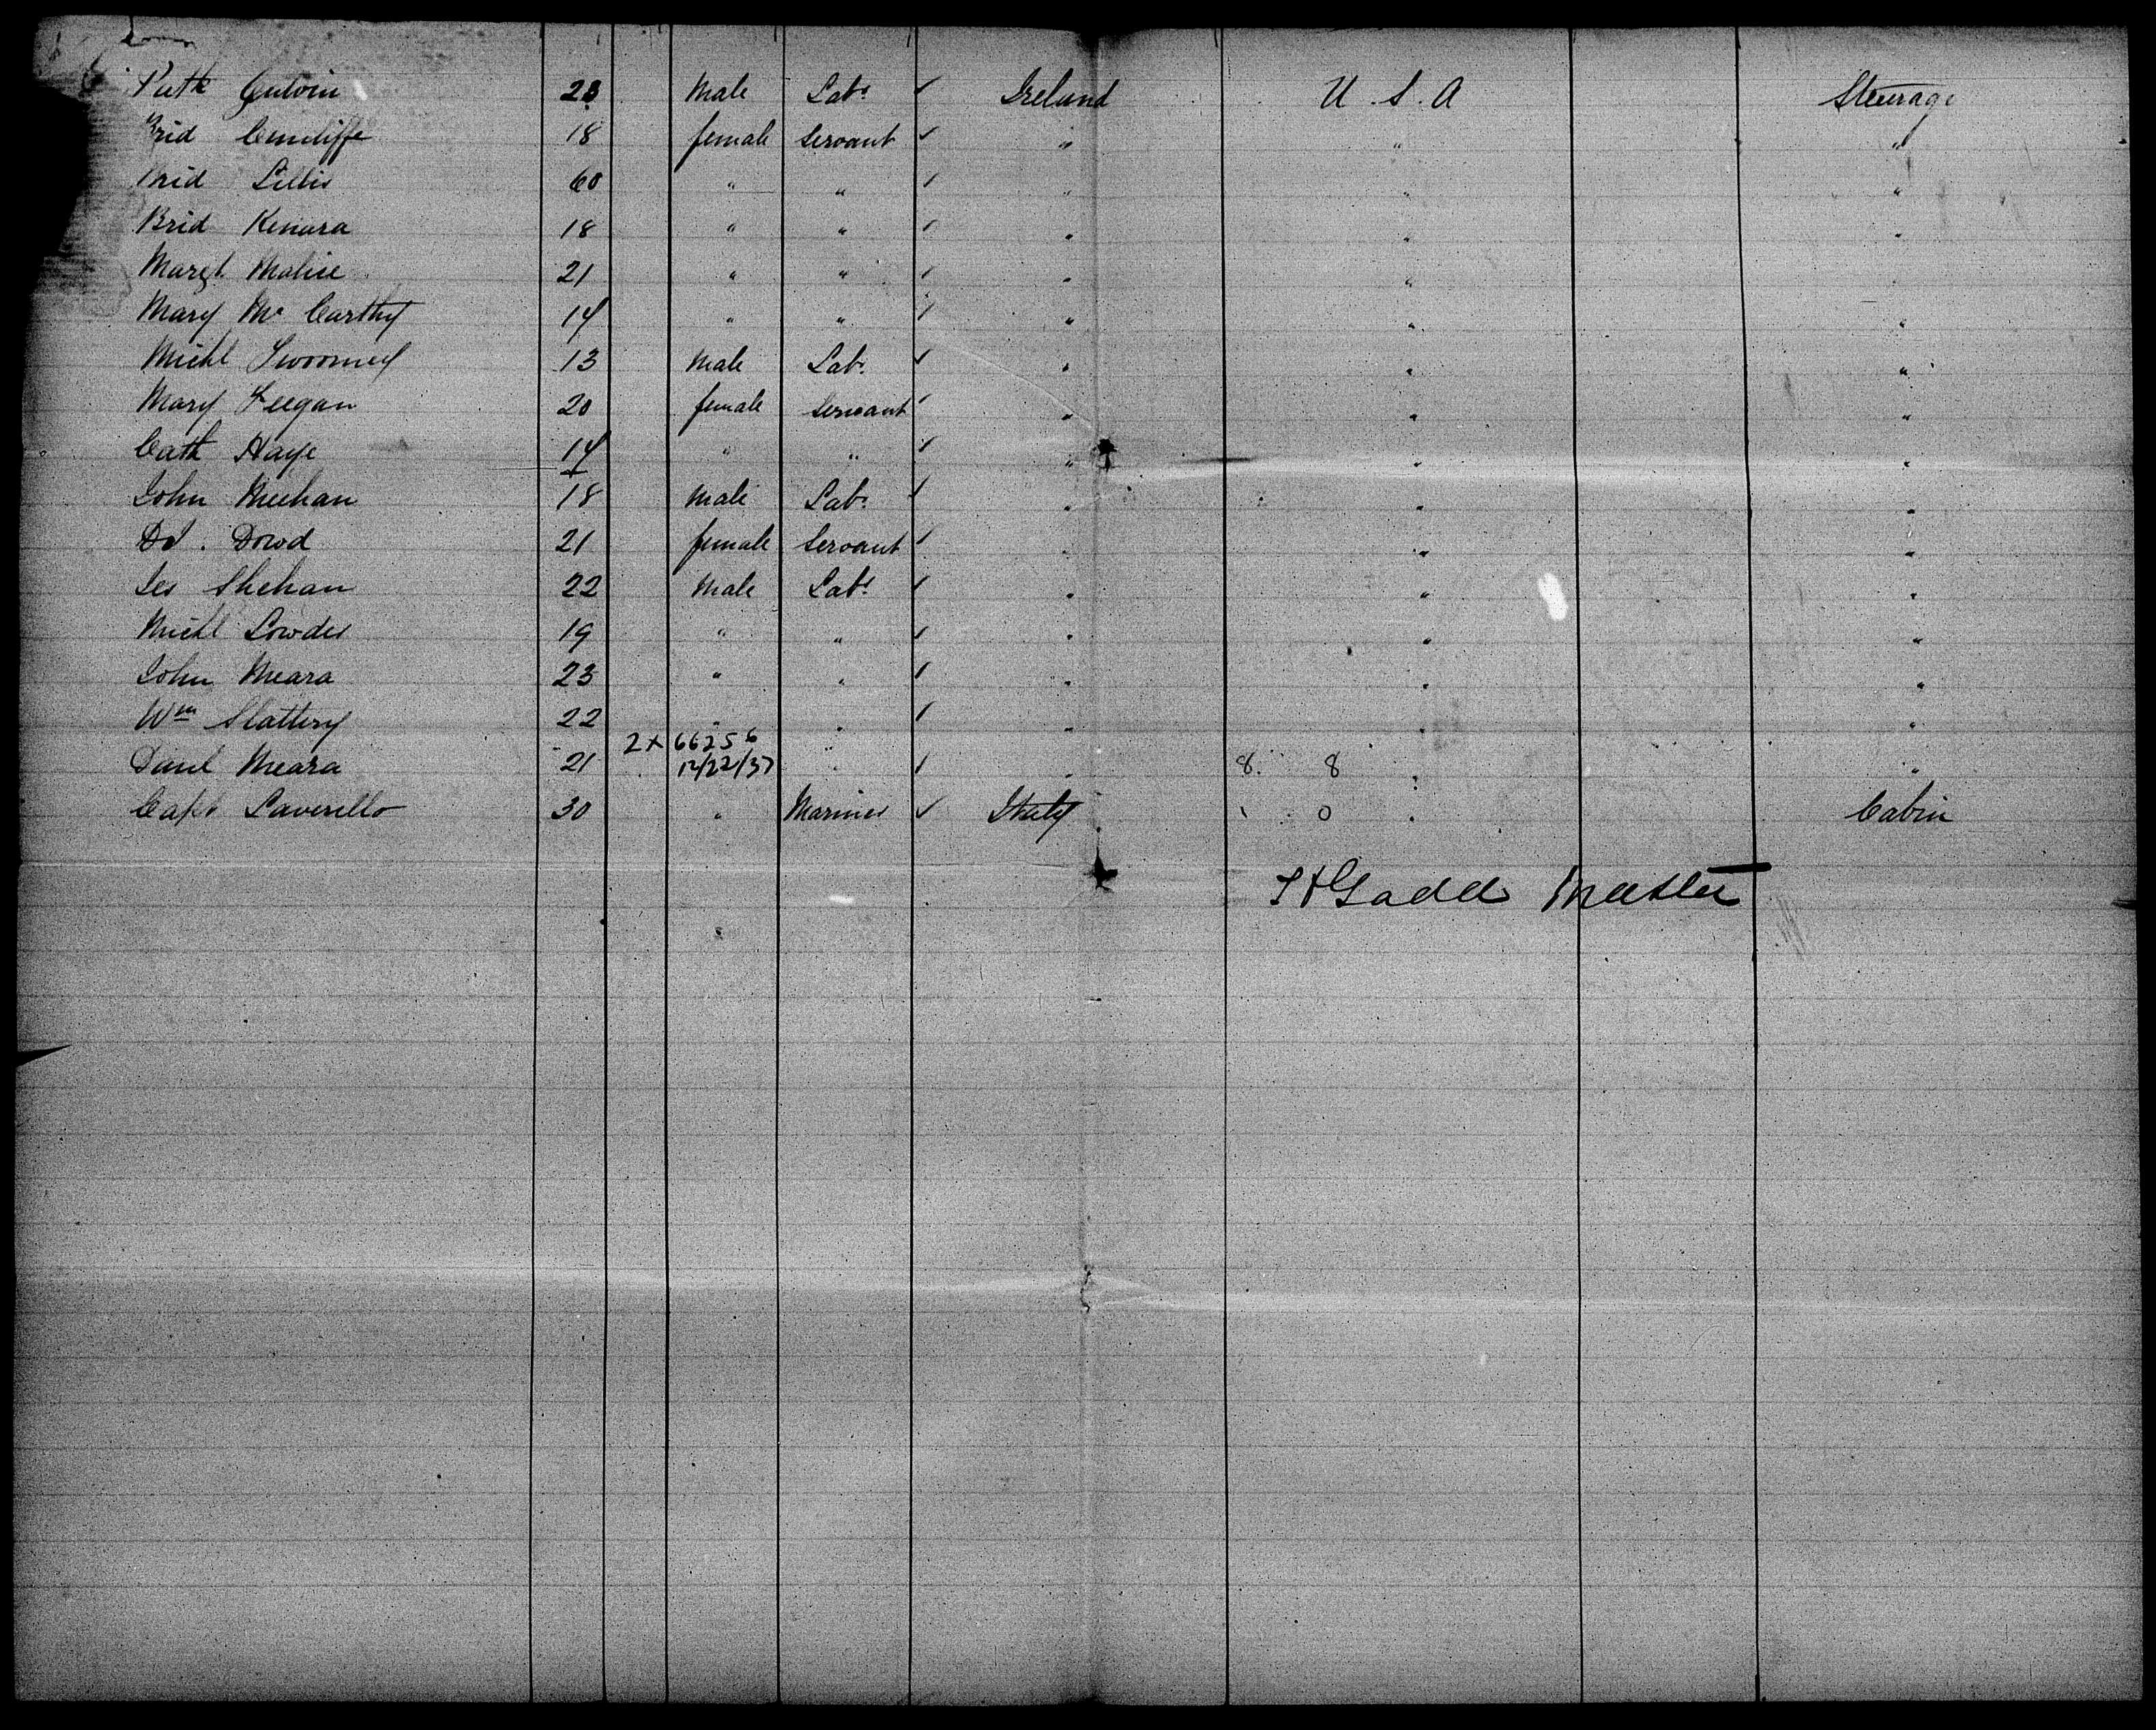 Patk Galvin 23 Male Labr ✓ Ireland U.S.A Steerage
Brid Cunliffe 18 female Servant ✓ " " "
Brid Lillis 60 " " ✓ " " "
Brid Kenara 18 " " ✓ " " "
Margt Malise 21 " " ✓ " "
Mary Mc Carthy 14 " " ✓ " " "
Michl Twoomey 13 Male Labr ✓ " " "
Mary Feegan 20 female Servant ✓ " " "
Cath Haye 14 " " ✓ " " "
John Meehan 18 Male Labr ✓ " " "
Dowd 21 female Servant ✓ " " "
Jas Shehan 22 Male Labr ✓ " " "
Michl Lowder 19 " " ✓ " " "
John Meara 23 " " ✓ " " "
Wm Slattery 22 " " ✓ " " "
2x 66256
Danl Meara 21 12/22/37 " ✓ " 8 8 " "
Capt Lavesello 30 " Mariner ✓ Italy 0 " Cabin
Gadd Master